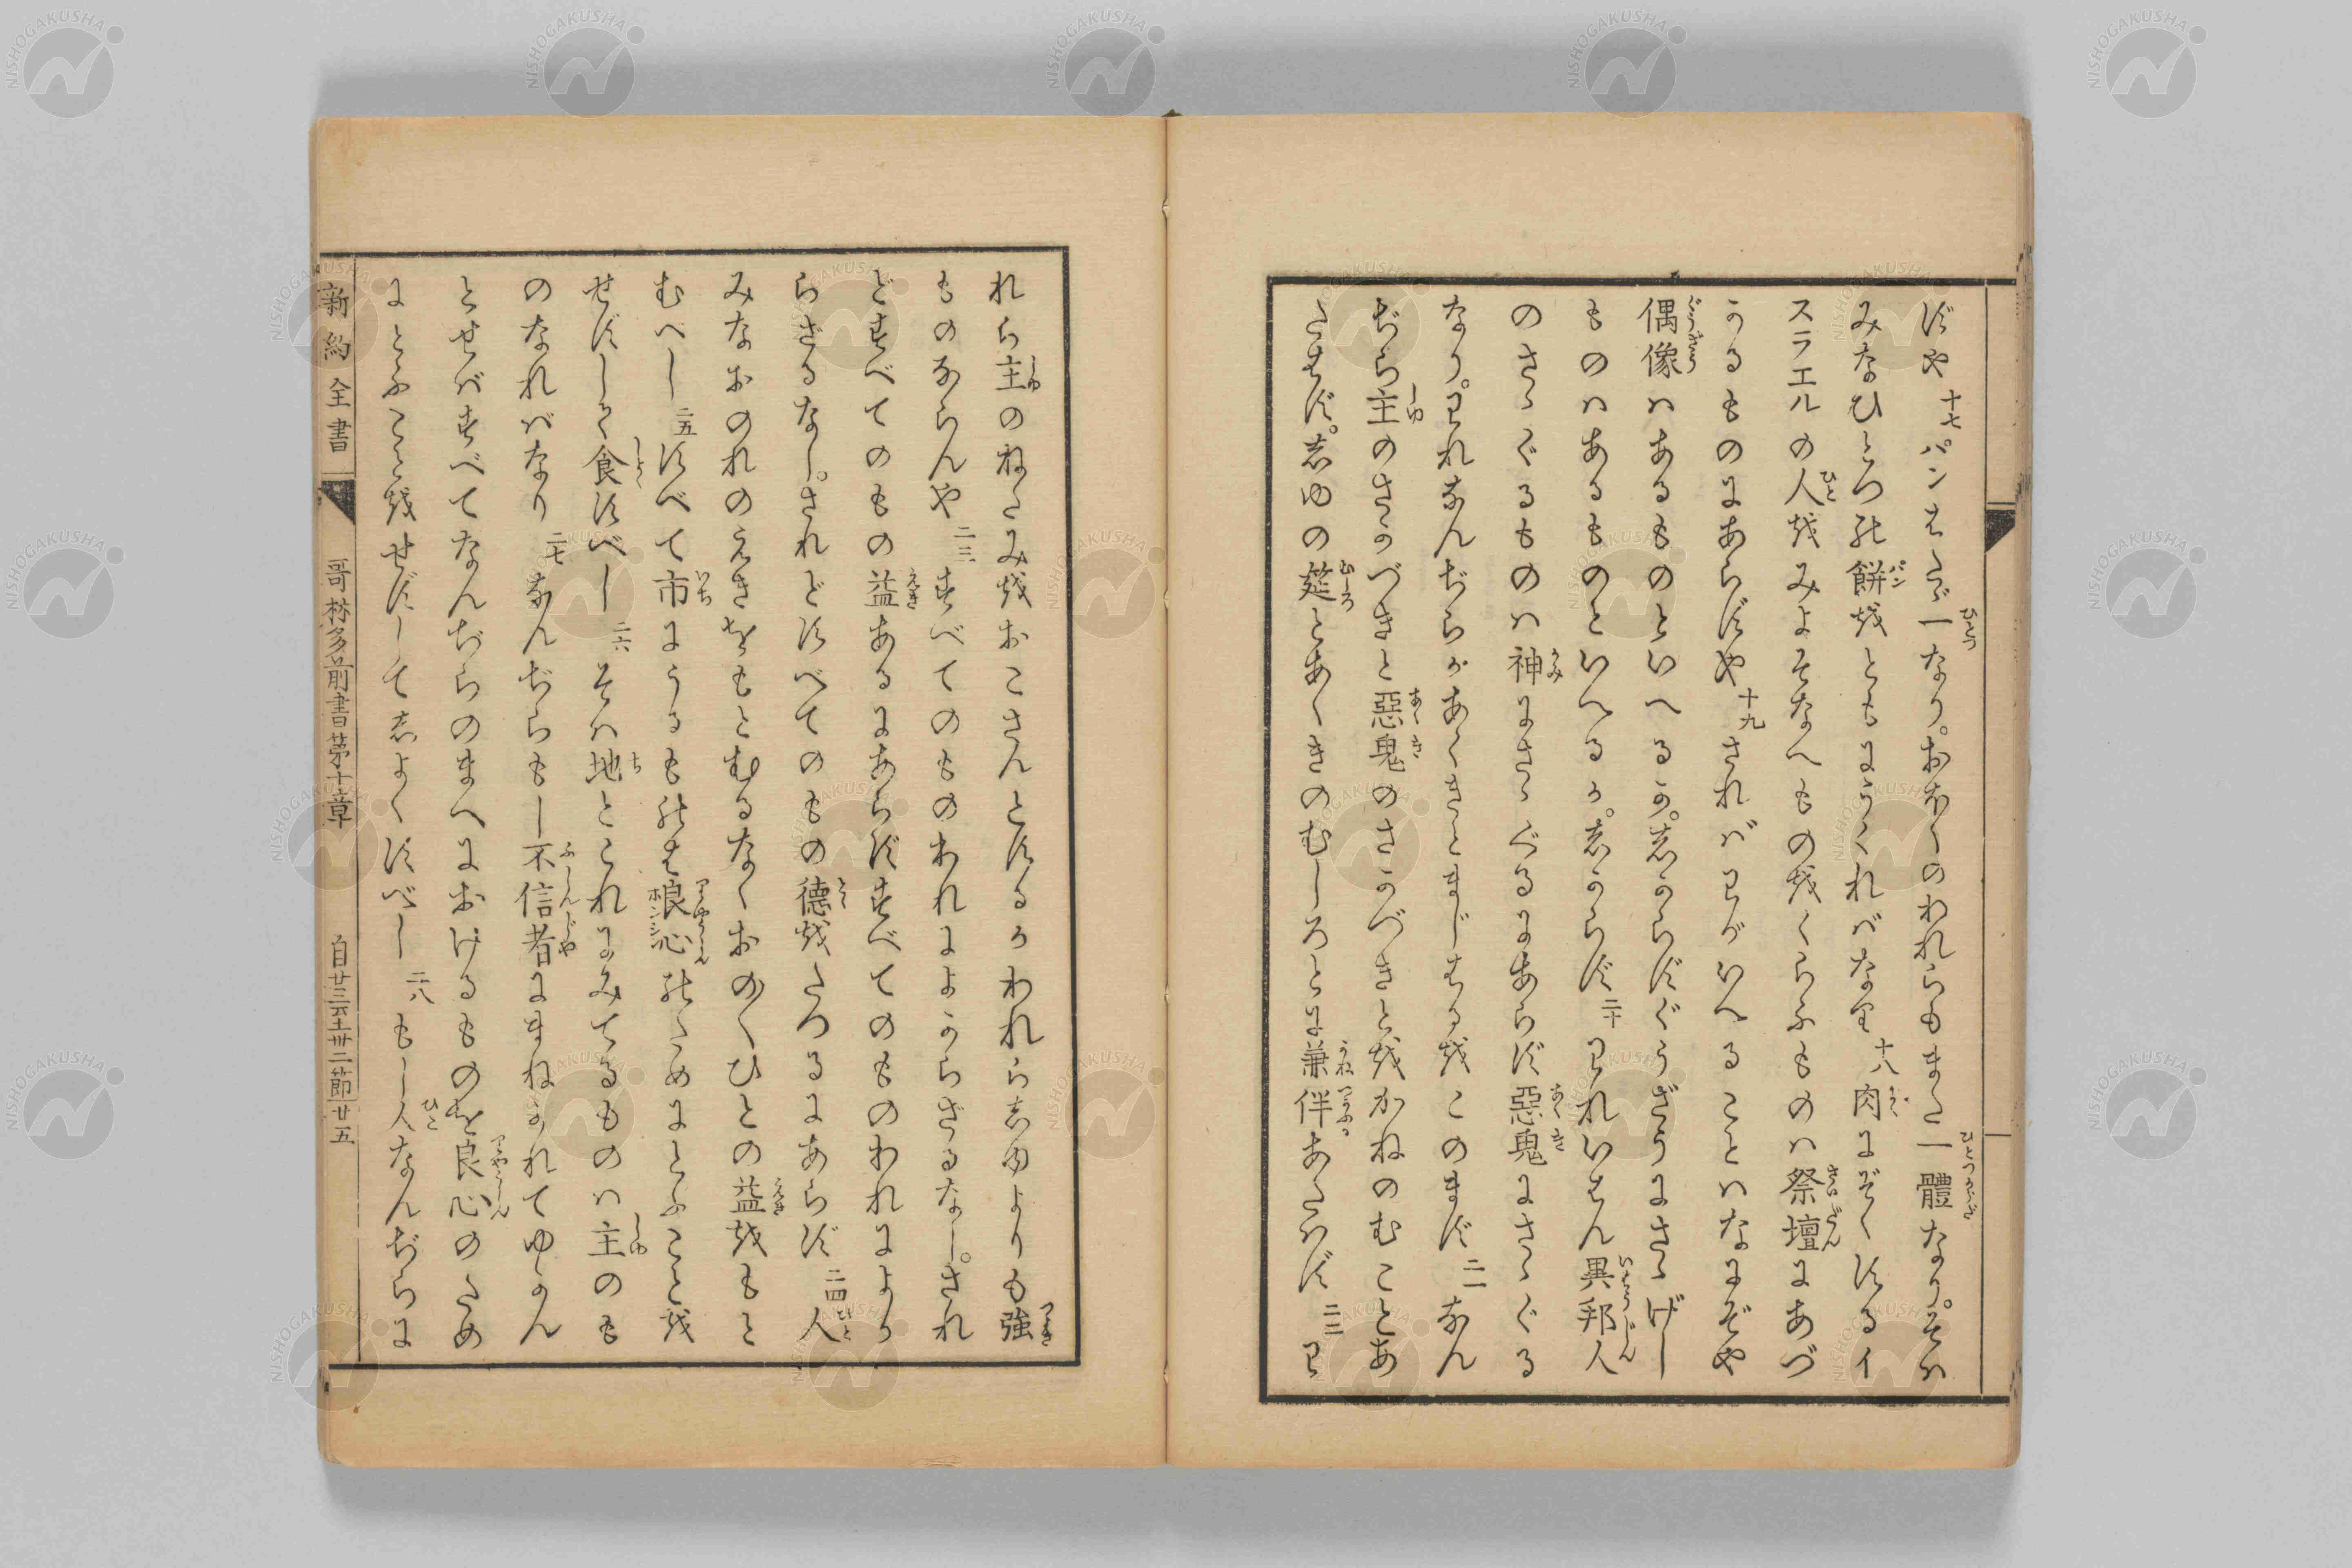 ずや 十七 パンはたゞ一なり。おほくのわれらもまた一體なり。そハ
みなひとつの餅をともにうくれバなり 十八 肉にぞくするイ
スラエルの人をみよそなへものをくらふものハ祭壇にあづ
かるものにあらずや 十九 されバわがいへることハなにぞや
偶像ハあるものといへるか。しからずぐうざうにさゝげし
ものハあるものといへるか。しからず 二十 われいはん異邦人
のさゝぐるものハ神にさゝぐるにあらず惡鬼にさゝぐる
なり。われなんぢらがあくきとまじはるをこのまず 二一 なん
ぢら主のさかづきと惡鬼のさかづきとをかねのむことあ
たはず。しゆの筵とあくきのむしろとに兼伴あたハず 二二 わ
れら主のねたみをおこさんとするかわれらしゆよりも強
ものならんや 二三 すべてのものわれによからざるなし。され
どすべてのもの益あるにあらずすべてのものわれによか
らざるなし。されどすべてのもの德をたつるにあらず 二四 人
みなおのれのえきをもとむるなくおの〱ひとの益をもと
むべし 二五 すべて市にうるものは良心のためにとふことを
せずしく食すべし 二六 そハ地とこれにみてるものハ主のも
のなれバなり 二七 なんぢらもし不信者にまねかれてゆかん
とせバすべてなんぢらのまへにおけるものを良心のため
にとふことをせずしてしよくすべし 二八 もし人なんぢらに
新約全書 哥林多前書第十章 自廿三至卅二節 廿五